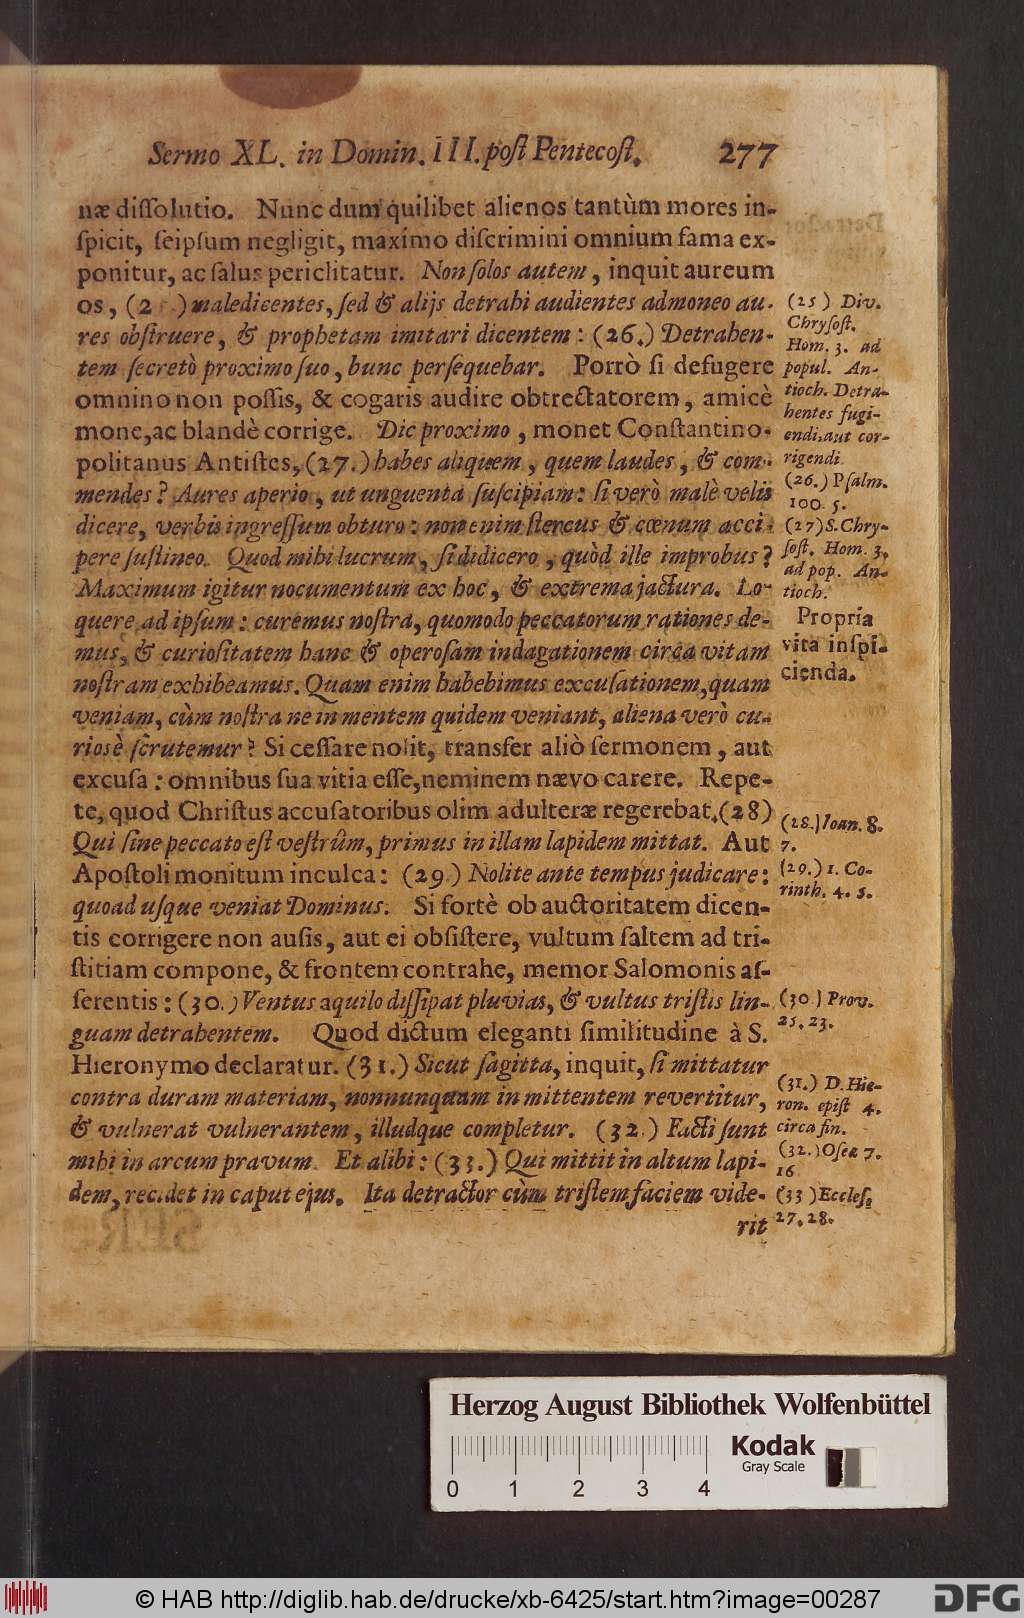 Sermo XL. in Domin. III. poſt Pentecoſt. 277
næ diſſolutio. Nunc dum quilibet alienos tantùm mores in-
ſpicit, ſeipſum negligit, maximo diſcrimini omnium fama ex-
ponitur, ac ſalus periclitatur. Non ſolos autem, inquit aureum
os, (2 .) maledicentes, ſed & alijs detrahi audientes admoneo au-
res obſtruere, & prophetam imitari dicentem: (26.) Detrahen-
tem ſecretò proximo ſuo, hunc perſequebar. Porrò ſi defugere
omnino non poſſis, & cogaris audire obtrectatorem, amicè
mone, ac blandè corrige. Dic proximo, monet Conſtantino-
politanus Antiſtes, (27.) habes aliquem, quem laudes, & com-
mendes? Aures aperio, ut unguenta ſuſcipiam: ſi verò malè velis
dicere, verbis ingreſſum obturo: non enim ſtercus & cœnum acci-
pere ſuſtineo. Quod mihi lucrum, ſi didicero, quòd ille improbus?
Maximum igitur nocumentum ex hoc, & extrema jactura. Lo-
quere ad ipſum: curemus noſtra, quomodo peccatorum rationes de-
mus, & curioſitatem hanc & operoſam indagationem circa vitam
noſtram exhibeamus. Quam enim habebimus excuſationem, quam
veniam, cùm noſtra ne in mentem quidem veniant, aliena verò cu-
riosè ſcrutemur? Si ceſſare nolit, transfer aliò ſermonem, aut
excuſa: omnibus ſua vitia eſſe, neminem nævo carere. Repe-
te, quod Chriſtus accuſatoribus olim adulteræ regerebat, (28)
Qui ſine peccato eſt veſtrûm, primus in illam lapidem mittat. Aut
Apoſtoli monitum inculca: (29.) Nolite ante tempus judicare:
quoad uſque veniat Dominus. Si fortè ob auctoritatem dicen-
tis corrigere non auſis, aut ei obſiſtere, vultum ſaltem ad tri-
ſtitiam compone, & frontem contrahe, memor Salomonis aſ-
ſerentis: (30.) Ventus aquilo diſſipat pluvias, & vultus triſtis lin-
guam detrahentem. Quod dictum eleganti ſimilitudine à S.
Hieronymo declaratur. (31.) Sicut ſagitta, inquit, ſi mittatur
contra duram materiam, nonnunquam in mittentem revertitur,
& vulnerat vulnerantem, illudque completur. (32.) Facti ſunt
mihi in arcum pravum. Et alibi: (33.) Qui mittit in altum lapi-
dem, recidet in caput ejus. Ita detractor cùm triſtem faciem vide-
rit
(25) Div.
Chryſoſt.
Hom. 3. ad
popul. An-
tioch. Detra-
hentes fugi-
endi, aut cor-
rigendi.
(26.) Pſalm.
100. 5.
(27) S. Chry-
ſoſt. Hom. 3.
ad pop. An-
tioch.
Propria
vita inſpi-
cienda.
(28.) Ioan. 8.
7.
(29.) 1. Co-
rinth. 4. 5.
(30) Prov.
25. 23.
(31.) D. Hie-
ron. epiſt 4.
circa fin.
(32.) Oſea 7.
16
(33) Eccleſ.
27. 28.
Herzog August Bibliothek Wolfenbüttel
Kodak
Gray Scale
0 1 2 3 4
© HAB http://diglib.hab.de/drucke/xb-6425/start.htm?image=00287
DFG